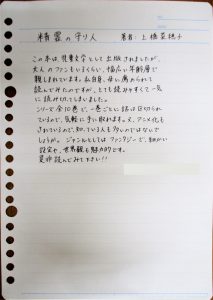 精霊の守り人　著者：上橋菜穂子
この本は、児童文学として出版されましたが、
大人のファンも多いくらい、幅広い年齢層で
親しまれています。私自身、母に薦められて
読んでみたのですが、とても読みやすくて一気
に読み切ってしまいました。
シリーズ全10巻で、一巻ごとに話は区切られ
ているので、気軽に手に取れます。又、アニメ化も
されているので、知っている人も多いのではないで
しょうか。ジャンルとしてはファンタジーで、細かい
設定や、世界観も魅力的です。
是非読んでみて下さい!!